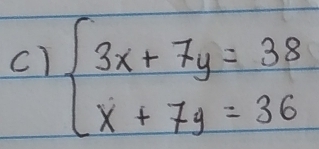 c) 3x + 7y = 38
x + 7y = 36